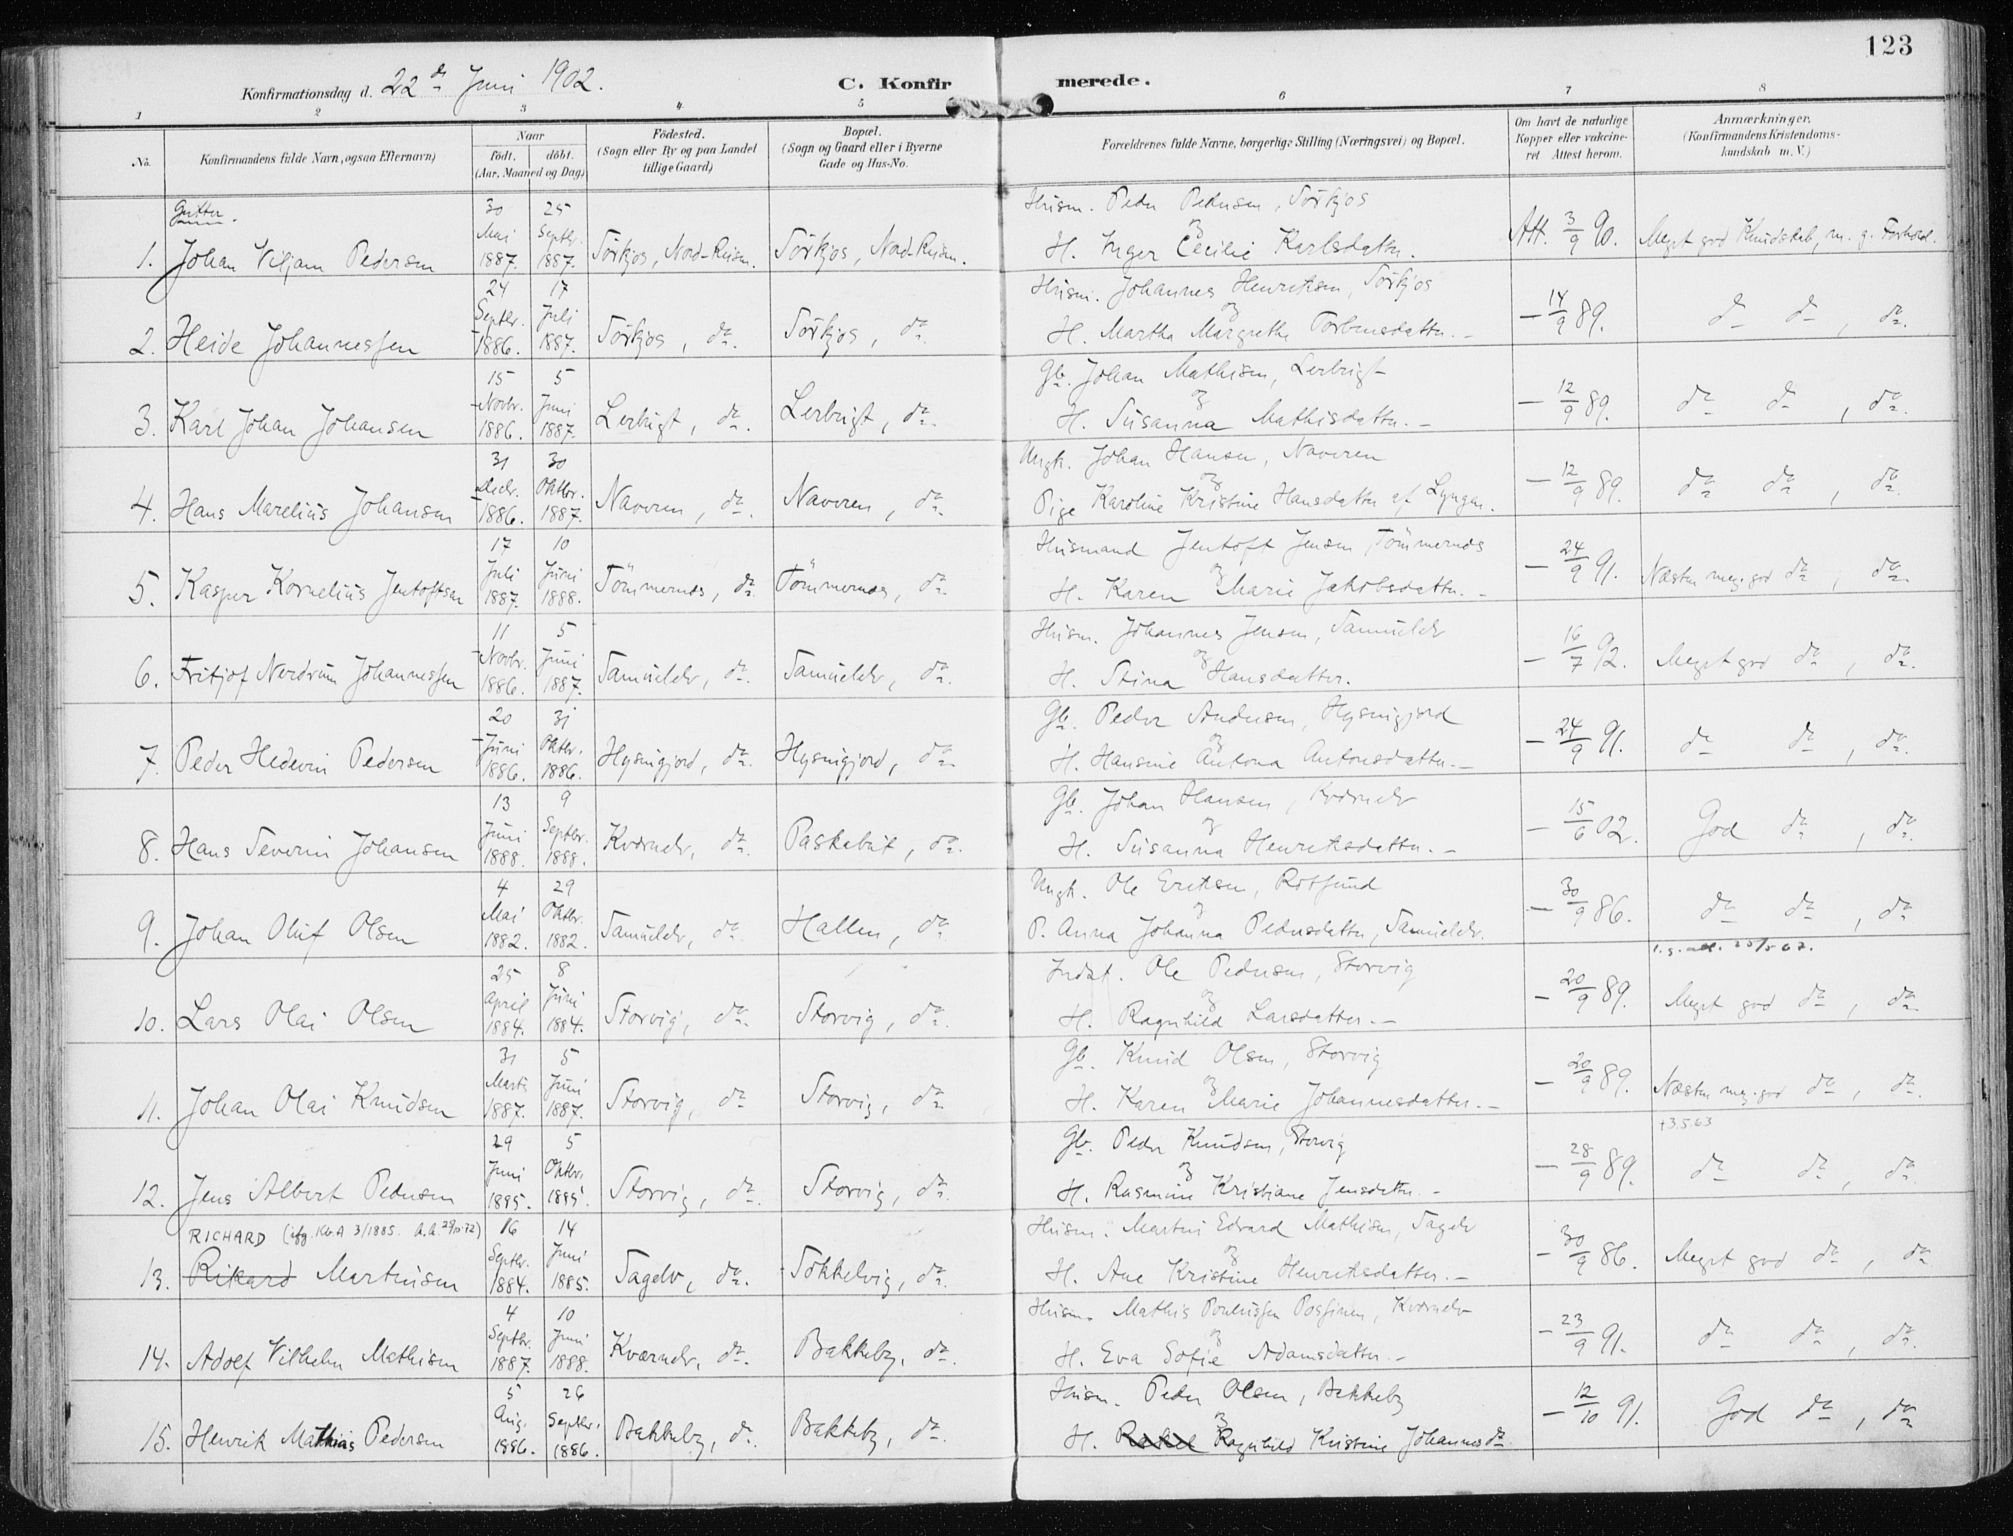 123
Konfirmationsdag d. 22de Juni 1902.
C. Konfirmerede.
1 2 3 4 5 6 7 8
No.
Konfirmandens fulde Navn, ogsaa Efternavn)
Naar
födt. döbt.
(Aar, Maaned og Dag)
Födested.
(Sogn eller By og paa Landet
tillige Gaard)
Bopæl.
(Sogn og Gaard eller i Byerne
Gade og Hus-No.
Forældrenes fulde Navne, borgerlige Stilling (Næringsvei) og Bopæl.
Om havt de naturlige
Kopper eller vakcine-
ret Attest herom.
Anmærkninger.
(Konfirmandens Kristendoms-
kundskab m. V.)
Gutter.
1. Johan Viljam Pedersen 30 Mai 1887. 25 Septbr. 1887. Sörkjos, Nord-Reisen. Sörkjos, Nord-Reisen. Husm. Peder Pedersen, Sörkjos og H. Inger Cecilie Karlsdatter. Att. 3/9 90. Meget god Kundskab, m. g. Forhold.
2. Heide Johannessen 24 Septbr. 1886. 17 Juli 1887. Sörkjos, do. Sörkjos, do. Husm. Johannes Henriksen, Sörkjos og H. Martha Margrethe Torbensdatter. – 14/9 89. do do, do.
3. Karl Johan Johansen 15 Novbr. 1886. 5 Juni 1887. Lerbugt, do. Lerbugt, do. Gb. Johan Mathisen, Lerbugt og H. Susanna Mathisdatter. – 12/9 89. do do, do.
4. Hans Marelius Johansen 31 Decbr. 1886. 30 Oktbr. 1887. Naveren, do. Naveren, do. Ungk. Johan Hansen, Naveren og Pige Karoline Kristine Hansdatter af Lyngen. – 12/9 89. do do, do.
5. Kasper Kornelius Jentoftsen 17 Juli 1887. 10 Juni 1888. Tömmernes, do. Tömmernes, do. Husmand Jentoft Jensen Tömmernes og H. Karen Marie Jakobsdatter. – 24/9 91. Næsten meg. god do, do.
6. Fritjof Nerdrum Johannessen 11 Novbr. 1886. 5 Juni 1887. Samuelelv, do. Samuelelv, do. Husm. Johannes Jensen, Samuelelv og H. Stina Hansdatter. – 16/7 92. Meget god do, do.
7. Peder Hedevin Pedersen 20 Juni 1886. 31 Oktbr. 1886. Hysingjord, do. Hysingjord, do. Gb. Peder Andersen, Hysingjord og H. Hansine Antona Antonsdatter. – 24/9 91. do do, do.
8. Hans Severin Johansen 13 Juni 1888. 9 Septbr. 1888. Kvænelv, do. Paskebut, do. Gb. Johan Hansen, Kvænelv og H. Susanna Henriksdatter. – 15/6 02. God do, do.
9. Johan Oluf Olsen 4 Mai 1882. 29 Oktbr. 1882. Samuelelv, do. Hallen, do. Ungk. Ole Eriksen, Rotsund og P. Anna Johanna Pedersdatter, Samuelelv. – 30/9 86. do do, do
10. Lars Olai Olsen 25 April 1884. 8 Juni 1884. Storvig, do. Storvig, do. Indst. Ole Pedersen, Storvig og H. Ragnhild Larsdatter. – 20/9 89. Meget god do, do
11. Johan Olai Knudsen 31 Marts 1887. 5 Juni 1887. Storvig, do. Storvig, do. Gb. Knud Olsen, Storvig og H. Karen Marie Johannesdatter. – 20/9 89. Næsten meg. god do, do.
† 3.5.63
12. Jens Albert Pedersen 29 Juni 1885. 5 Oktbr. 1885. Storvig, do. Storvig, do. Gb. Peder Knudsen, Storvig og H. Rasmine Kristiane Jensdatter. – 28/9 89. do do, do.
RICHARD (ifg. Kb.A 3/1885. A.A. 29/11-72)
13. Rikard Martinsen 16 Septbr. 1884. 14 Juni 1885. Tagelv, do. Sokkelvig, do. Husm. Martin Edvard Mathisen, Tagelv og H. Ane Kristine Henriksdatter. – 30/9 86. Meget god do, do
14. Adolf Vilhelm Mathisen 4 Septbr. 1887. 10 Juni 1888. Kvænelv, do. Bakkeby, do. Husm. Mathis Paulussen Possinen, Kvænelv og H. Eva Sofie Adamsdatter. – 23/9 91. do do, do.
15. Henrik Mathias Pedersen 5 Aug. 1886. 26 Septbr. 1886. Bakkeby, do. Bakkeby, do. Husm. Peder Olsen, Bakkeby og H. Rakel Ragnhild Kristine Johannesdtr – 12/10 91. God do, do